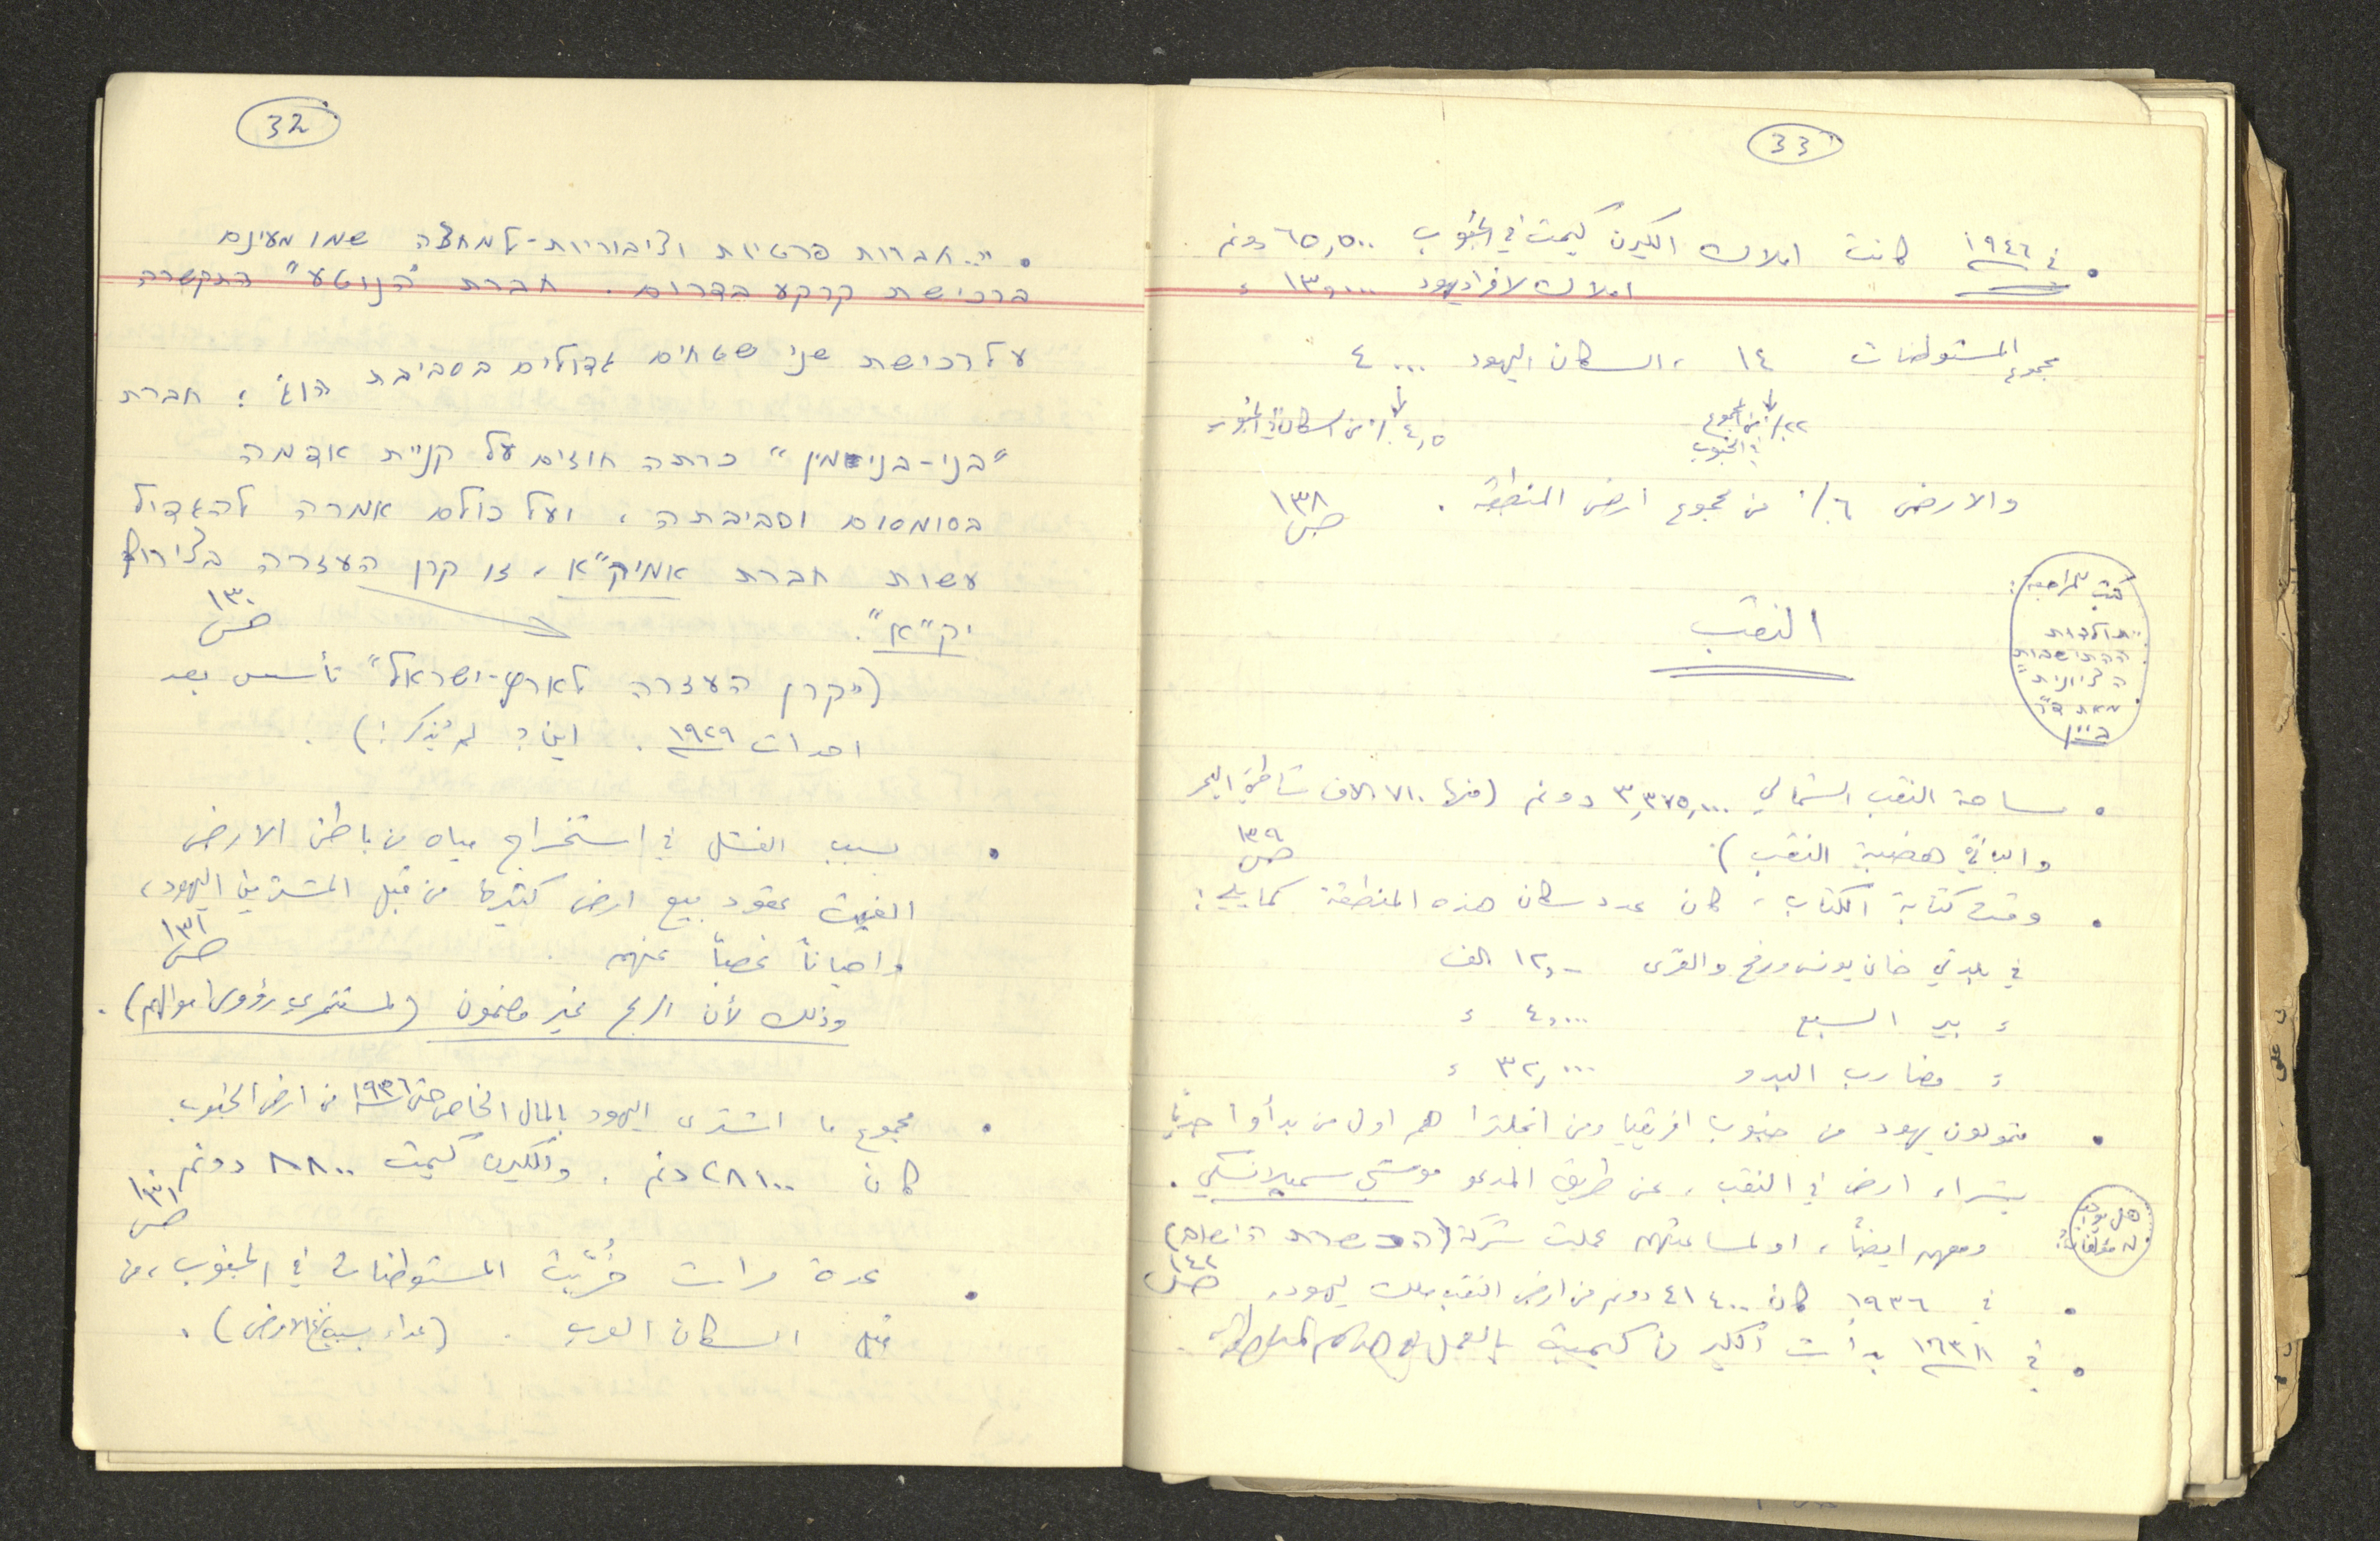 32
• ".. חברות פרטיות וציבוריות-למחצה שמו מעינם
ברכישת קרקע בדרום. חברת "הנוטע" התקשרה
על רכישת שני שטחים גדולים בסביבת הוג׳; חברת
"בני-בנימין" כרתה חוזים על קניית אדמה
בסומסום וסביבתה, ועל כולם אמרה להגדיל
עשות חברת אמיק"א, זו קרן העזרה בצירוף
יק"א".
ص ١٣٠
("קרן העזרה לארץ-ישראל" تأسس بعد
احداث ١٩٢٩. اين؟ لم يُذكر!).
• بسبب الفشل في استخراج مياه من باطن الارض
الغيت عقود بيع ارض كثيرة من قبل المشترين اليهود،
واحياناً غصباً عنهم. ص ١٣١
وذلك لأن الربح غير مضمون (لمستثمري رؤوس اموالهم).
• مجموع ما اشترى اليهود بالمال الخاص حتى ١٩٣٦ من ارض الجنوب
كان ٢٨١٠٠ دنم. والكيرن كيمت ٨٨٠٠ دونم
ص ١٣١
• عدة مرات خُرّبت المستوطنات في الجنوب، من
قبل السكان العرب. (عداء بسبب الارض).
33
• في ١٩٤٦ كانت املاك الكيرن كيمت في الجنوب ٦٥,٥٠٠ دونم
املاك لافراد يهود ١٣,٠٠٠ ء
مجموع المستوطنات ١٤، السكان اليهود ٤٠٠٠
٢٢٪ من المجموع في الجنوب
٤,٥٪ من السكان في الجنوب
والارض ٦٪ من مجموع ارض المنطقة. ص ١٣٨
كتب للمراجعة:
"תולדות
ההתישבות
הציונית"
מאת ד"ר
ביין
النقب
• مساحة النقب الشمالي ٣,٣٧٥,٠٠٠ دونم (منها ٧١٠ الاف شاطئ البحر
والباقي هضبة النقب). ص ١٣٩
• وقت كتابة الكتاب، كان عدد سكان هذه المنطقة كما يلي:
في بلدتي خان يونس ورفح والقرى ١٢,- الف
ء بير السبع ٤,٠٠٠ ء
ء مضارب البدو ٣٢,٠٠٠ ء
• متمولون يهود من جنوب افريقيا ومن انجلترا هم اول من بدأوا جدياً
بشراء ارض في النقب، عن طريق المدعو موشي سميلانسكي.
هل يوجد له مؤلفات؟
ومعهم ايضاً، او لمساعدتهم عملت شركة (הכשרת הישוב)
• في ١٩٣٦ كان ٤١٤٠٠ دونم من ارض النقب ملك يهود. ص ١٤٢
• في ١٩٣٨ بدأت الكيرن كيميت بالعمل